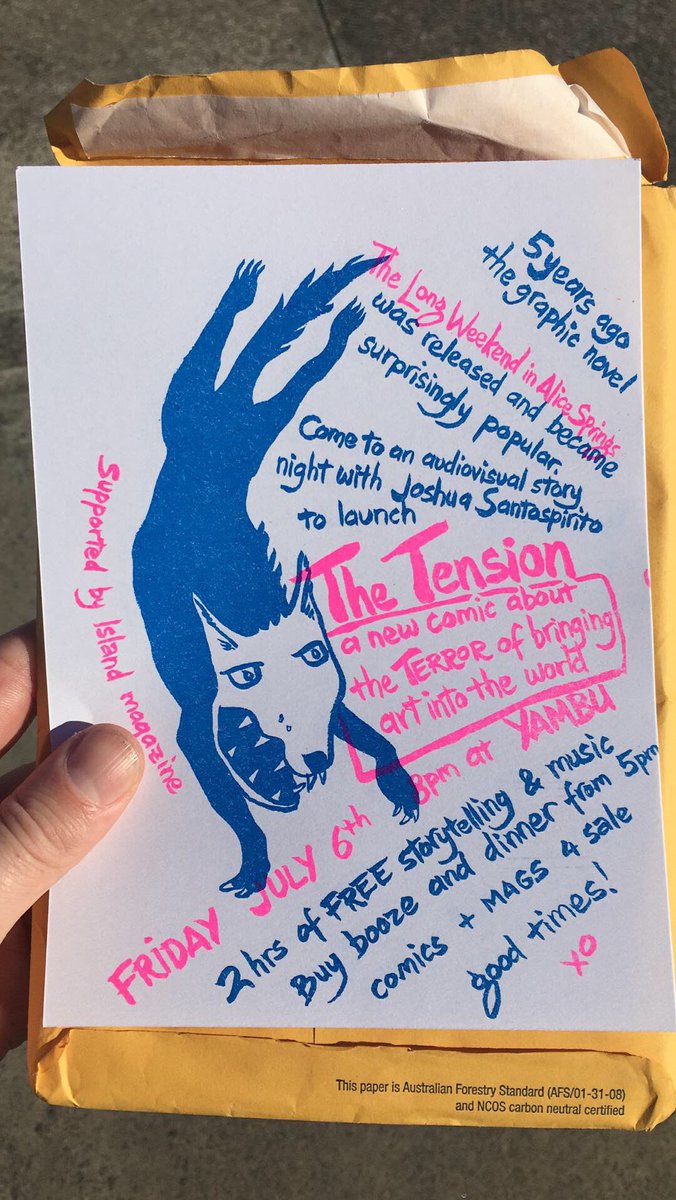 5 years ago
the graphic novel
The Long Weekend in Alice Springs
was released and became
surprisingly popular.
Come to an audiovisual story
night with Joshua Santospirito
to launch
The Tension
a new comic about
the TERROR of bringing
art into the world
FRIDAY JULY 6th 8pm at YAMBU
2 hrs of FREE storytelling & music
Buy booze and dinner from 5pm
comics + MAGS 4 sale
good times!
xo
Supported by Island magazine
This paper is Australian Forestry Standard (AFS/01-31-08)
and NCOS carbon neutral certified